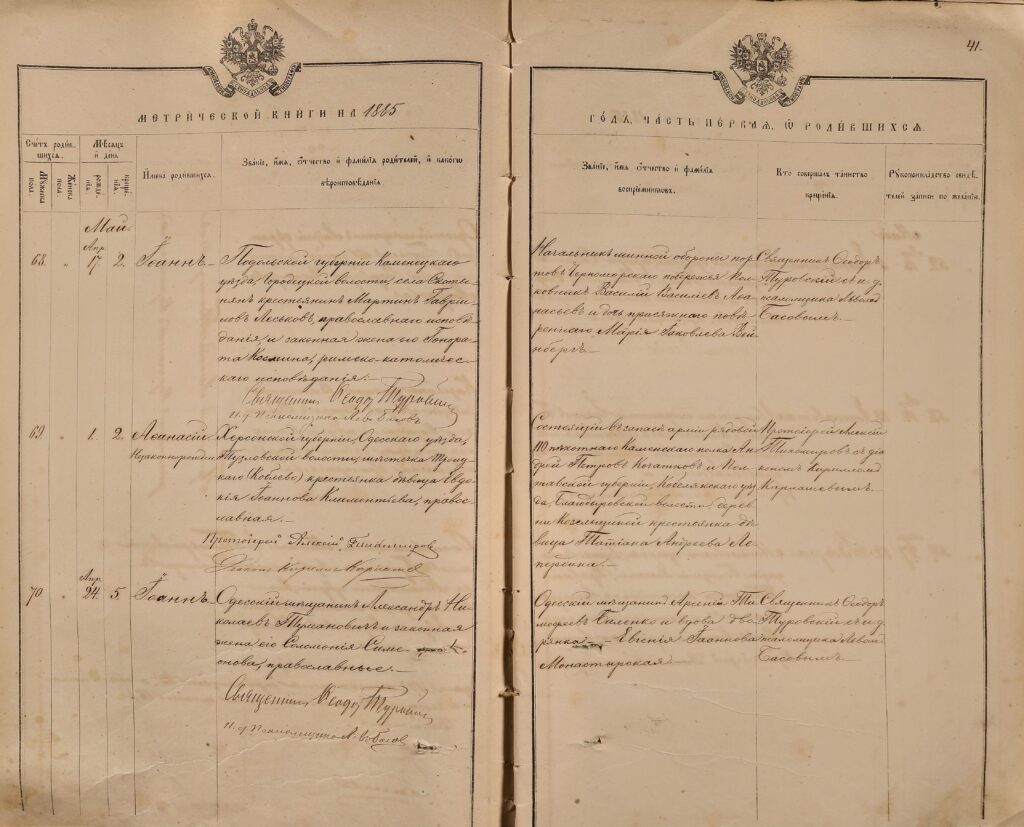 41.
МЕТРИЧЕСКОЙ КНИГИ НА 1885
ГОДЪ, ЧАСТЬ ПЕРВАЯ, Ѡ РОДИВШИХСЯ.
Счетъ родив
шихся.
Мужеска пола
Женска пола.
Мѣсяцъ
и день
рожде
нія
креще
нія.
Имена родившихся.
Званіе, имя, отчество и фамилія родителей, и какого
вѣроисповѣданія.
Званіе, имя, отчество и фамилія
воспріемниковъ.
Кто совершалъ таинство
крещенія.
Рукоприкладство свидѣ
телей записи по желанію.
Май.
Апр.
68. " 17. 2. Іоаннъ
Подольской губерніи Каменецкаго
уѣзда, Городецкой волости, села
крестьянинъ Мартинъ Гаврии
ловъ Леськовъ, православнаго исповѣ
данія и законная жена его
Космина, римско-католичес
каго исповѣданія.
Священникъ Ѳеодор Туровскій
и. д. псаломщика Левъ Басовъ
Начальникъ минной обороны пор
товъ Черноморскаго побережья Пол
ковникъ Василій Васильевъ Аѳа
насьевъ и дочь присяжнаго повѣ
реннаго Марія Яковлева Вей
нбергъ
Священникъ Ѳеодоръ
Туровскій съ и. д.
псаломщика Львомъ
Басовымъ.
69. " 1. 2. Аѳанасій
Незаконнорожден
Херсонской губерніи, Одесскаго уѣзда,
Тузловской волости, мѣстечка Троиц
каго (Коблево) крестьянка дѣвица Евдо
кія Іоаннова Климентьева, право
славная.
Протоіерей Алексій Тихомировъ
Діаконъ Кириллъ
Состоящій въ запасѣ арміи рядовой
110 пѣхотнаго Каменскаго полка Ан
дрей Петровъ и Пол
тавской губерніи, Кобелякскаго уѣз
да, волости, дерев
ни крестьянка дѣ
вица Татіана Андреева Ле
пербина.
Протоіерей Алексій
Тихомировъ съ діа
кономъ Кирилломъ
Апр.
70 " 24. 5. Іоаннъ
Одесскій мѣщанинъ Александръ Ни
колаевъ Тумановичъ и законная
жена его Соломонія Симе
онова, православные.
Священникъ Ѳеодор Туровскій
и. д. псаломщика Левъ Басовъ
Одесскій мѣщанинъ Арсеній Ти
моѳеевъ Биленко и вдова дво
рянка Евгенія Іоаннова
Монастырская.
Священникъ Ѳеодоръ
Туровскій съ и. д.
псаломщика Львомъ
Басовымъ.